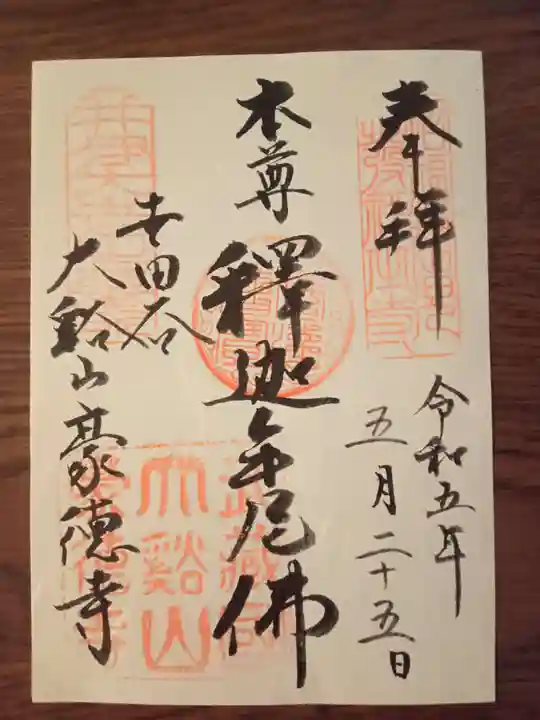 奉拜
令和五年
五月二十五日
本尊 釋迦牟尼佛
世田谷
大谿山豪德寺
大谿山
豪德寺